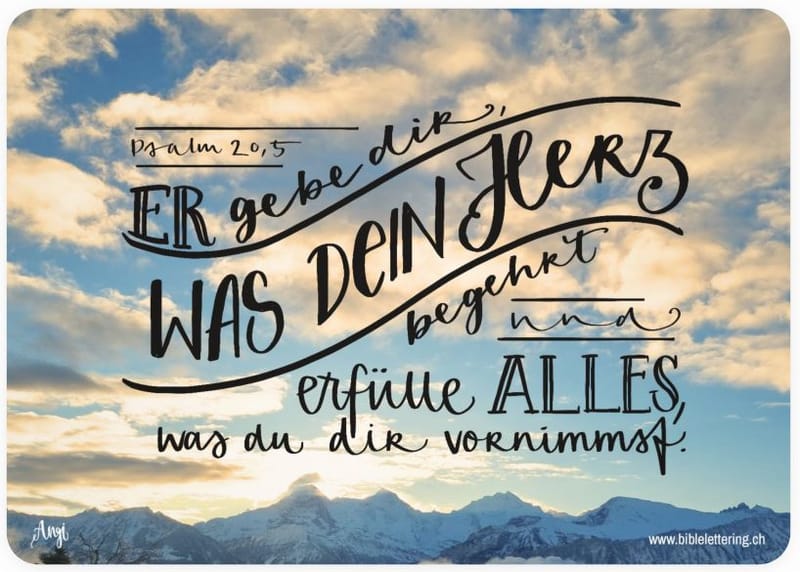 Psalm 20,5
ER gebe dir,
WAS DEIN Herz
begehrt
und
erfülle ALLES,
was du dir vornimmst.
Angi
www.biblelettering.ch